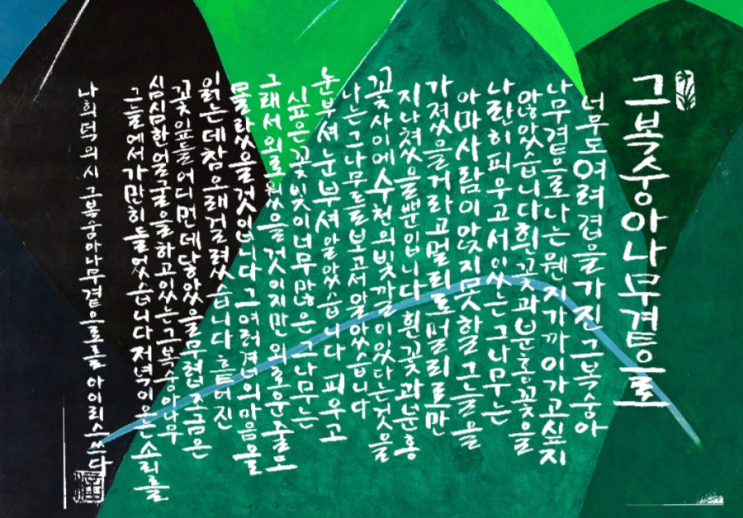 그복숭아나무곁으로
너무도여러겹을가진그복숭아
나무곁으로나는웬지가까이가고싶지
않았습니다흰꽃과분홍꽃을
나란히피우고서있는그나무는
아마사람이앉지못할그늘을
가졌을거라고멀리로멀리로만
지나쳤을뿐입니다흰꽃과분홍
꽃사이에수천의빛깔이있다는것을
나는그나무를보고서알았습니다
눈부셔눈부셔알았습니다 피우고
싶은꽃빛이너무많은그나무는
그래서외로웠을것이지만외로운줄도
몰랐을것입니다그여러겹의마음을
읽는데참오래걸렸습니다 흩어진
꽃잎들어디먼데닿았을무렵조금은
심심한얼굴을하고있는그복숭아나무
그늘에서가만히들었습니다저녁이오는소리를
나희덕의시 그복숭아나무곁으로를 아이리스쓰다